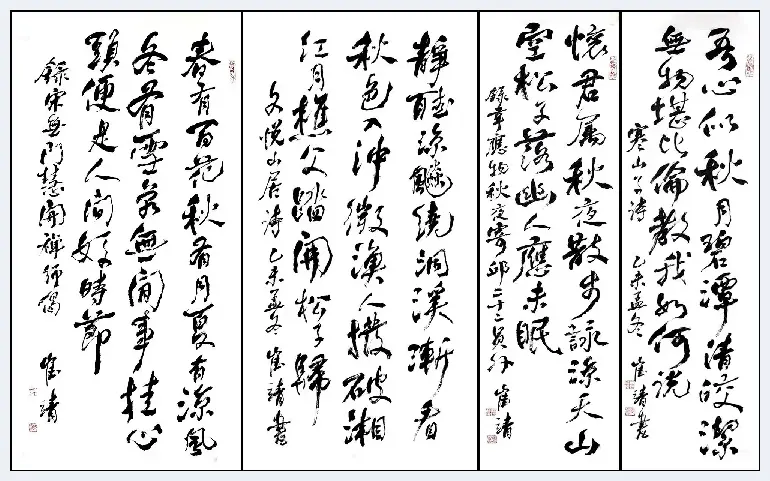 吾心似秋月碧潭清皎潔
無物堪比倫教我如何說
寒山子詩 乙未孟冬 崔 書
懷君屬秋夜散步詠涼天山
空松子落幽人應未眠
錄韋應物秋夜寄邱二十二員外 崔
靜聽涼飈繞洞溪漸看
秋色入沖微漁人撥破湘
江月樵父踏開松子歸
文悅山居詩 乙未孟冬 崔 書
春有百花秋有月夏有涼風
冬有雪若無閑事挂心
頭便是人間好時節
錄宋無門慧開禪師偈 崔